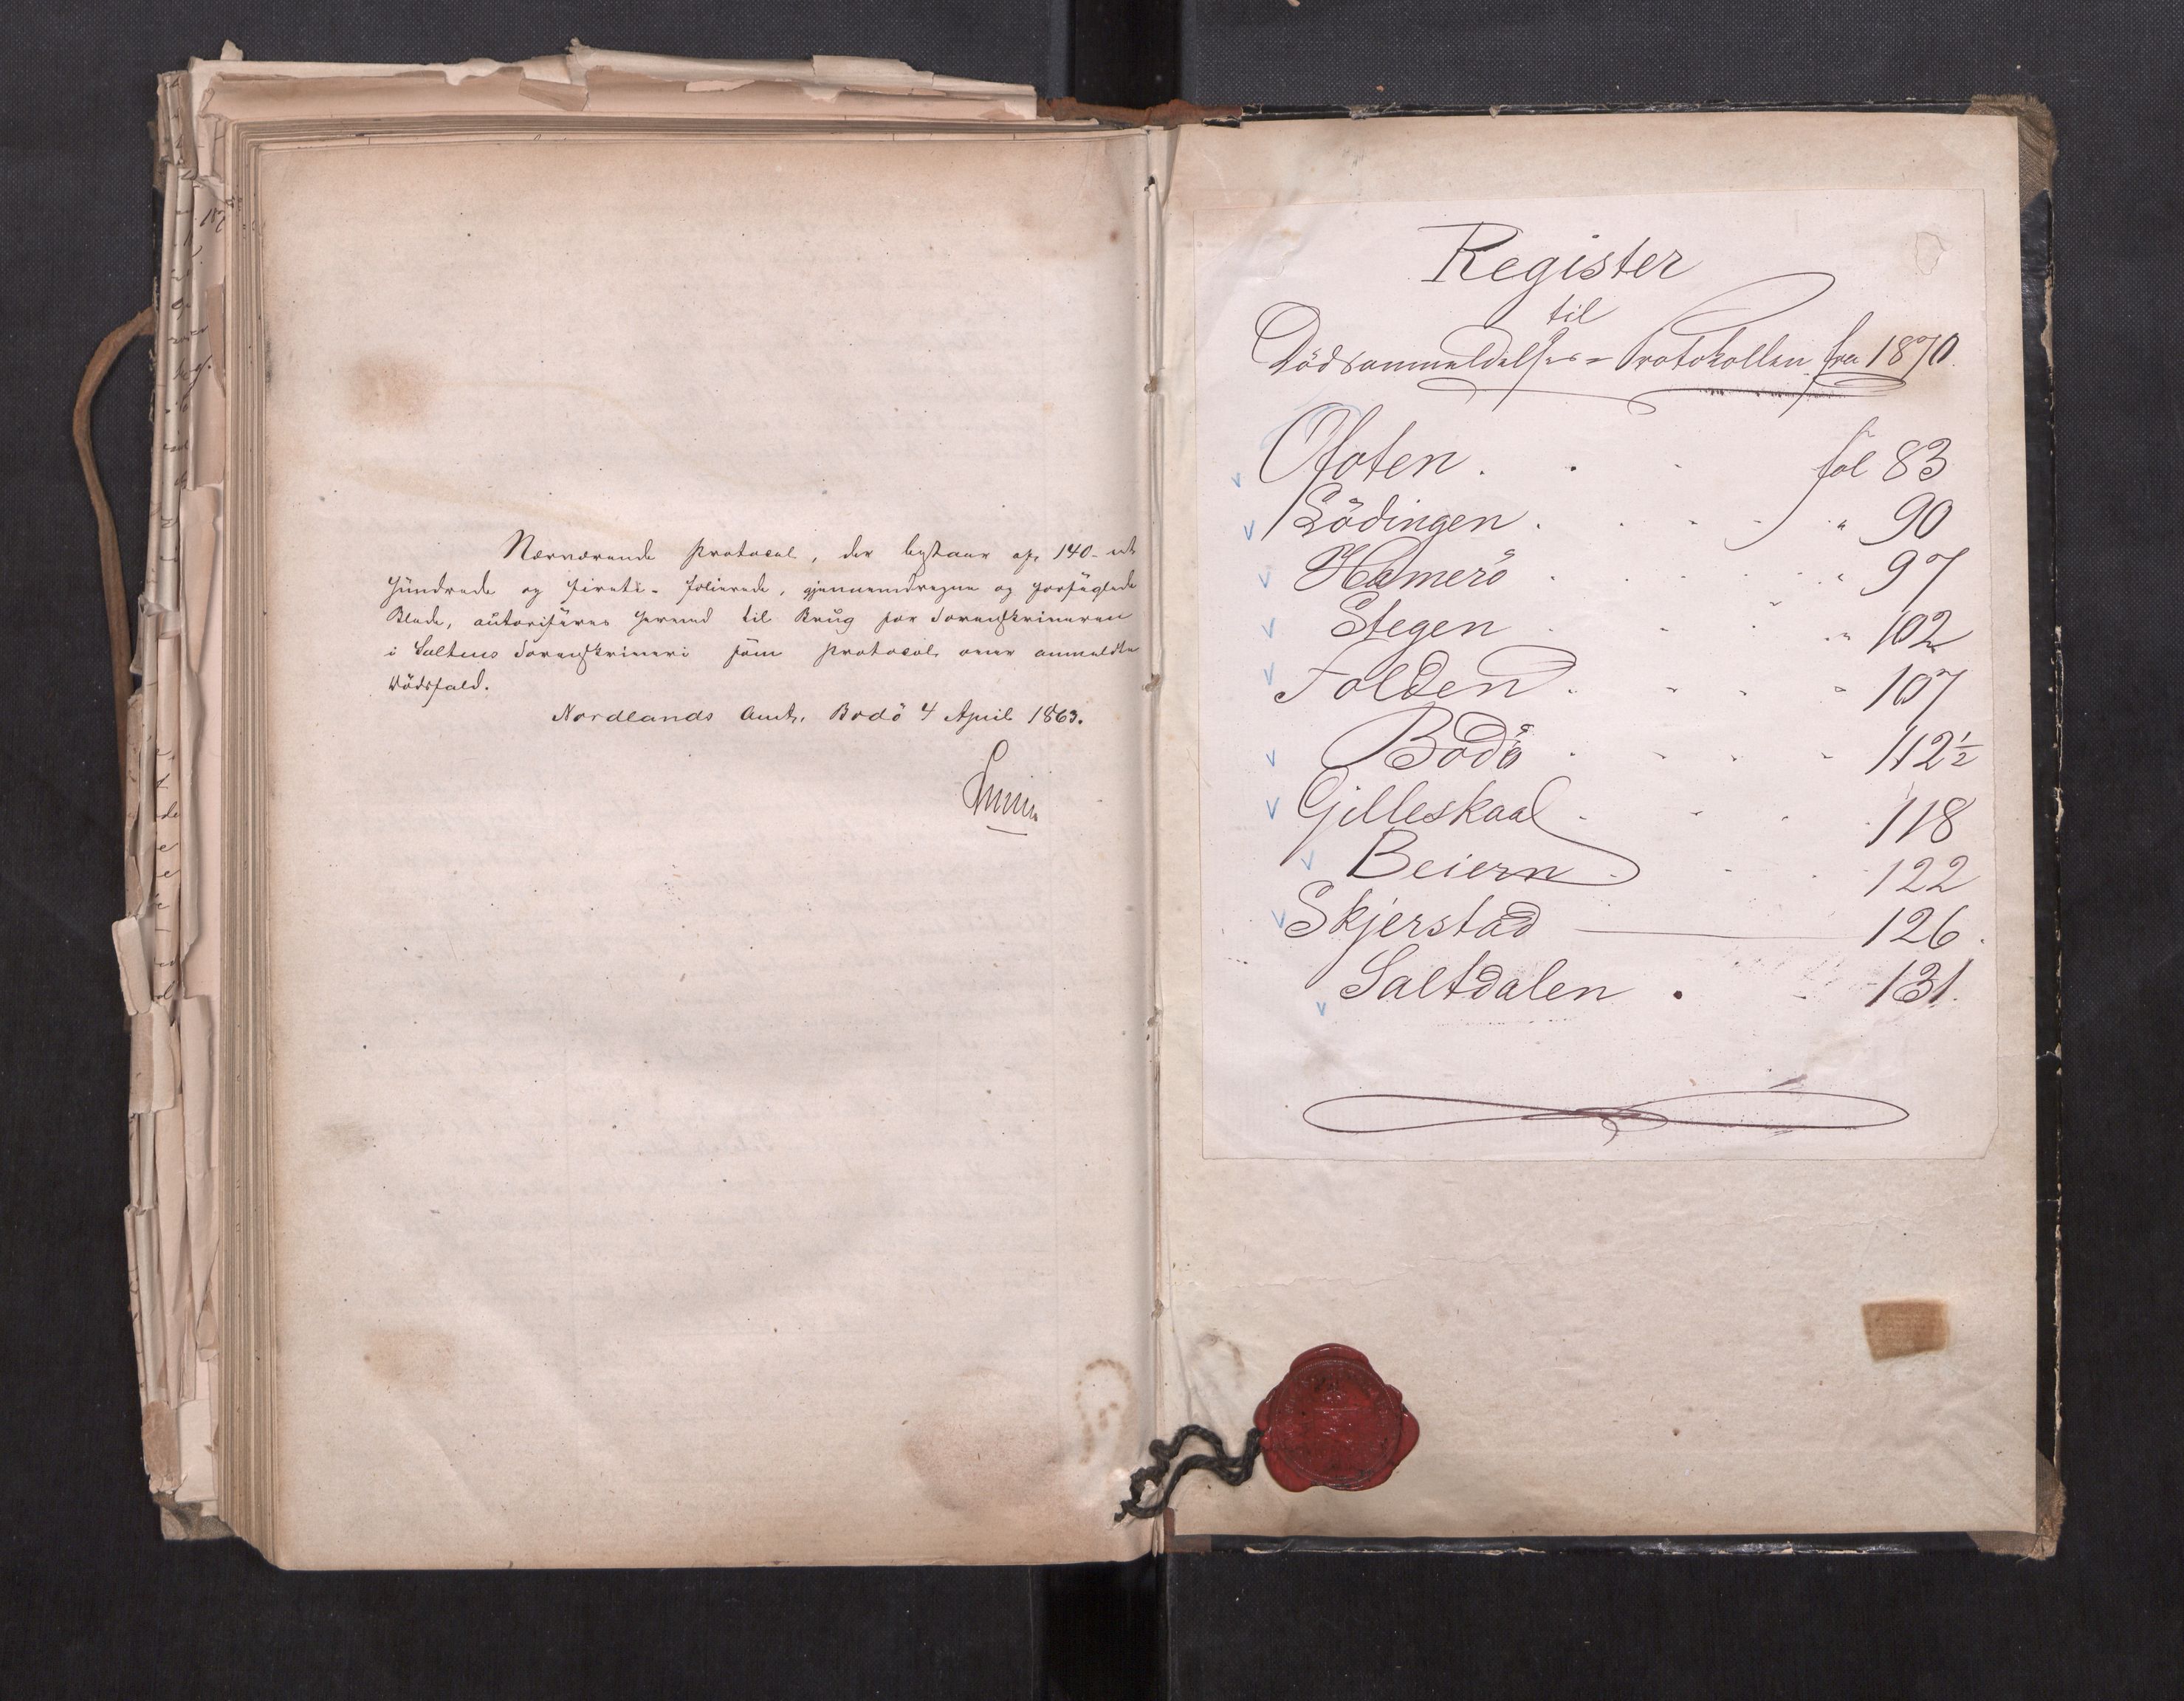 Nærværende Protocol, der bestaar af, 140 - et
Hundrede og fireti - folierede, gjennemdragne og forseglede
Blade, autoriseres herved til Brug for Sorenskriveren
i Saltens Sorenskriveri som Protocol over anmeldte
Dødsfald.
Nordlands Amt, Bodö 4 April 1863.
Register
til
Dödsanmeldelses-Protokollen fra 1870.
Ofoten . . . fol 83
Lödingen . . . . " 90
Hamerö . . . . " 97
Stegen . . . " 102
Folden . . . " 107
Bodö . . . . 112½
Gilleskaal . . . . 118
Beiern . . . . 122
Skjerstad — 126.
Saltdalen . - 131.